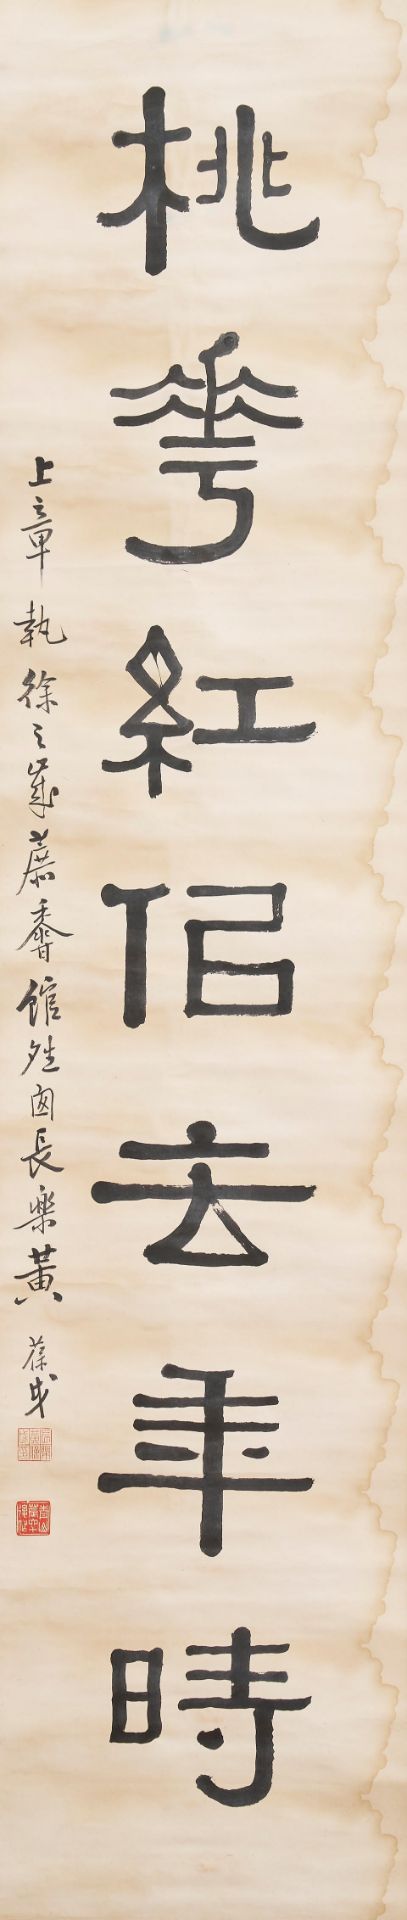 桃華紅佀去年時
上章執徐之歲蔗香館雄囪長樂黃葆戉